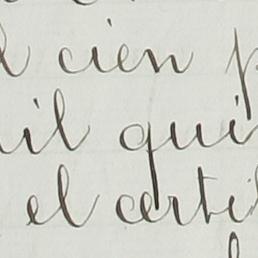 l cien p
il qui
el certi